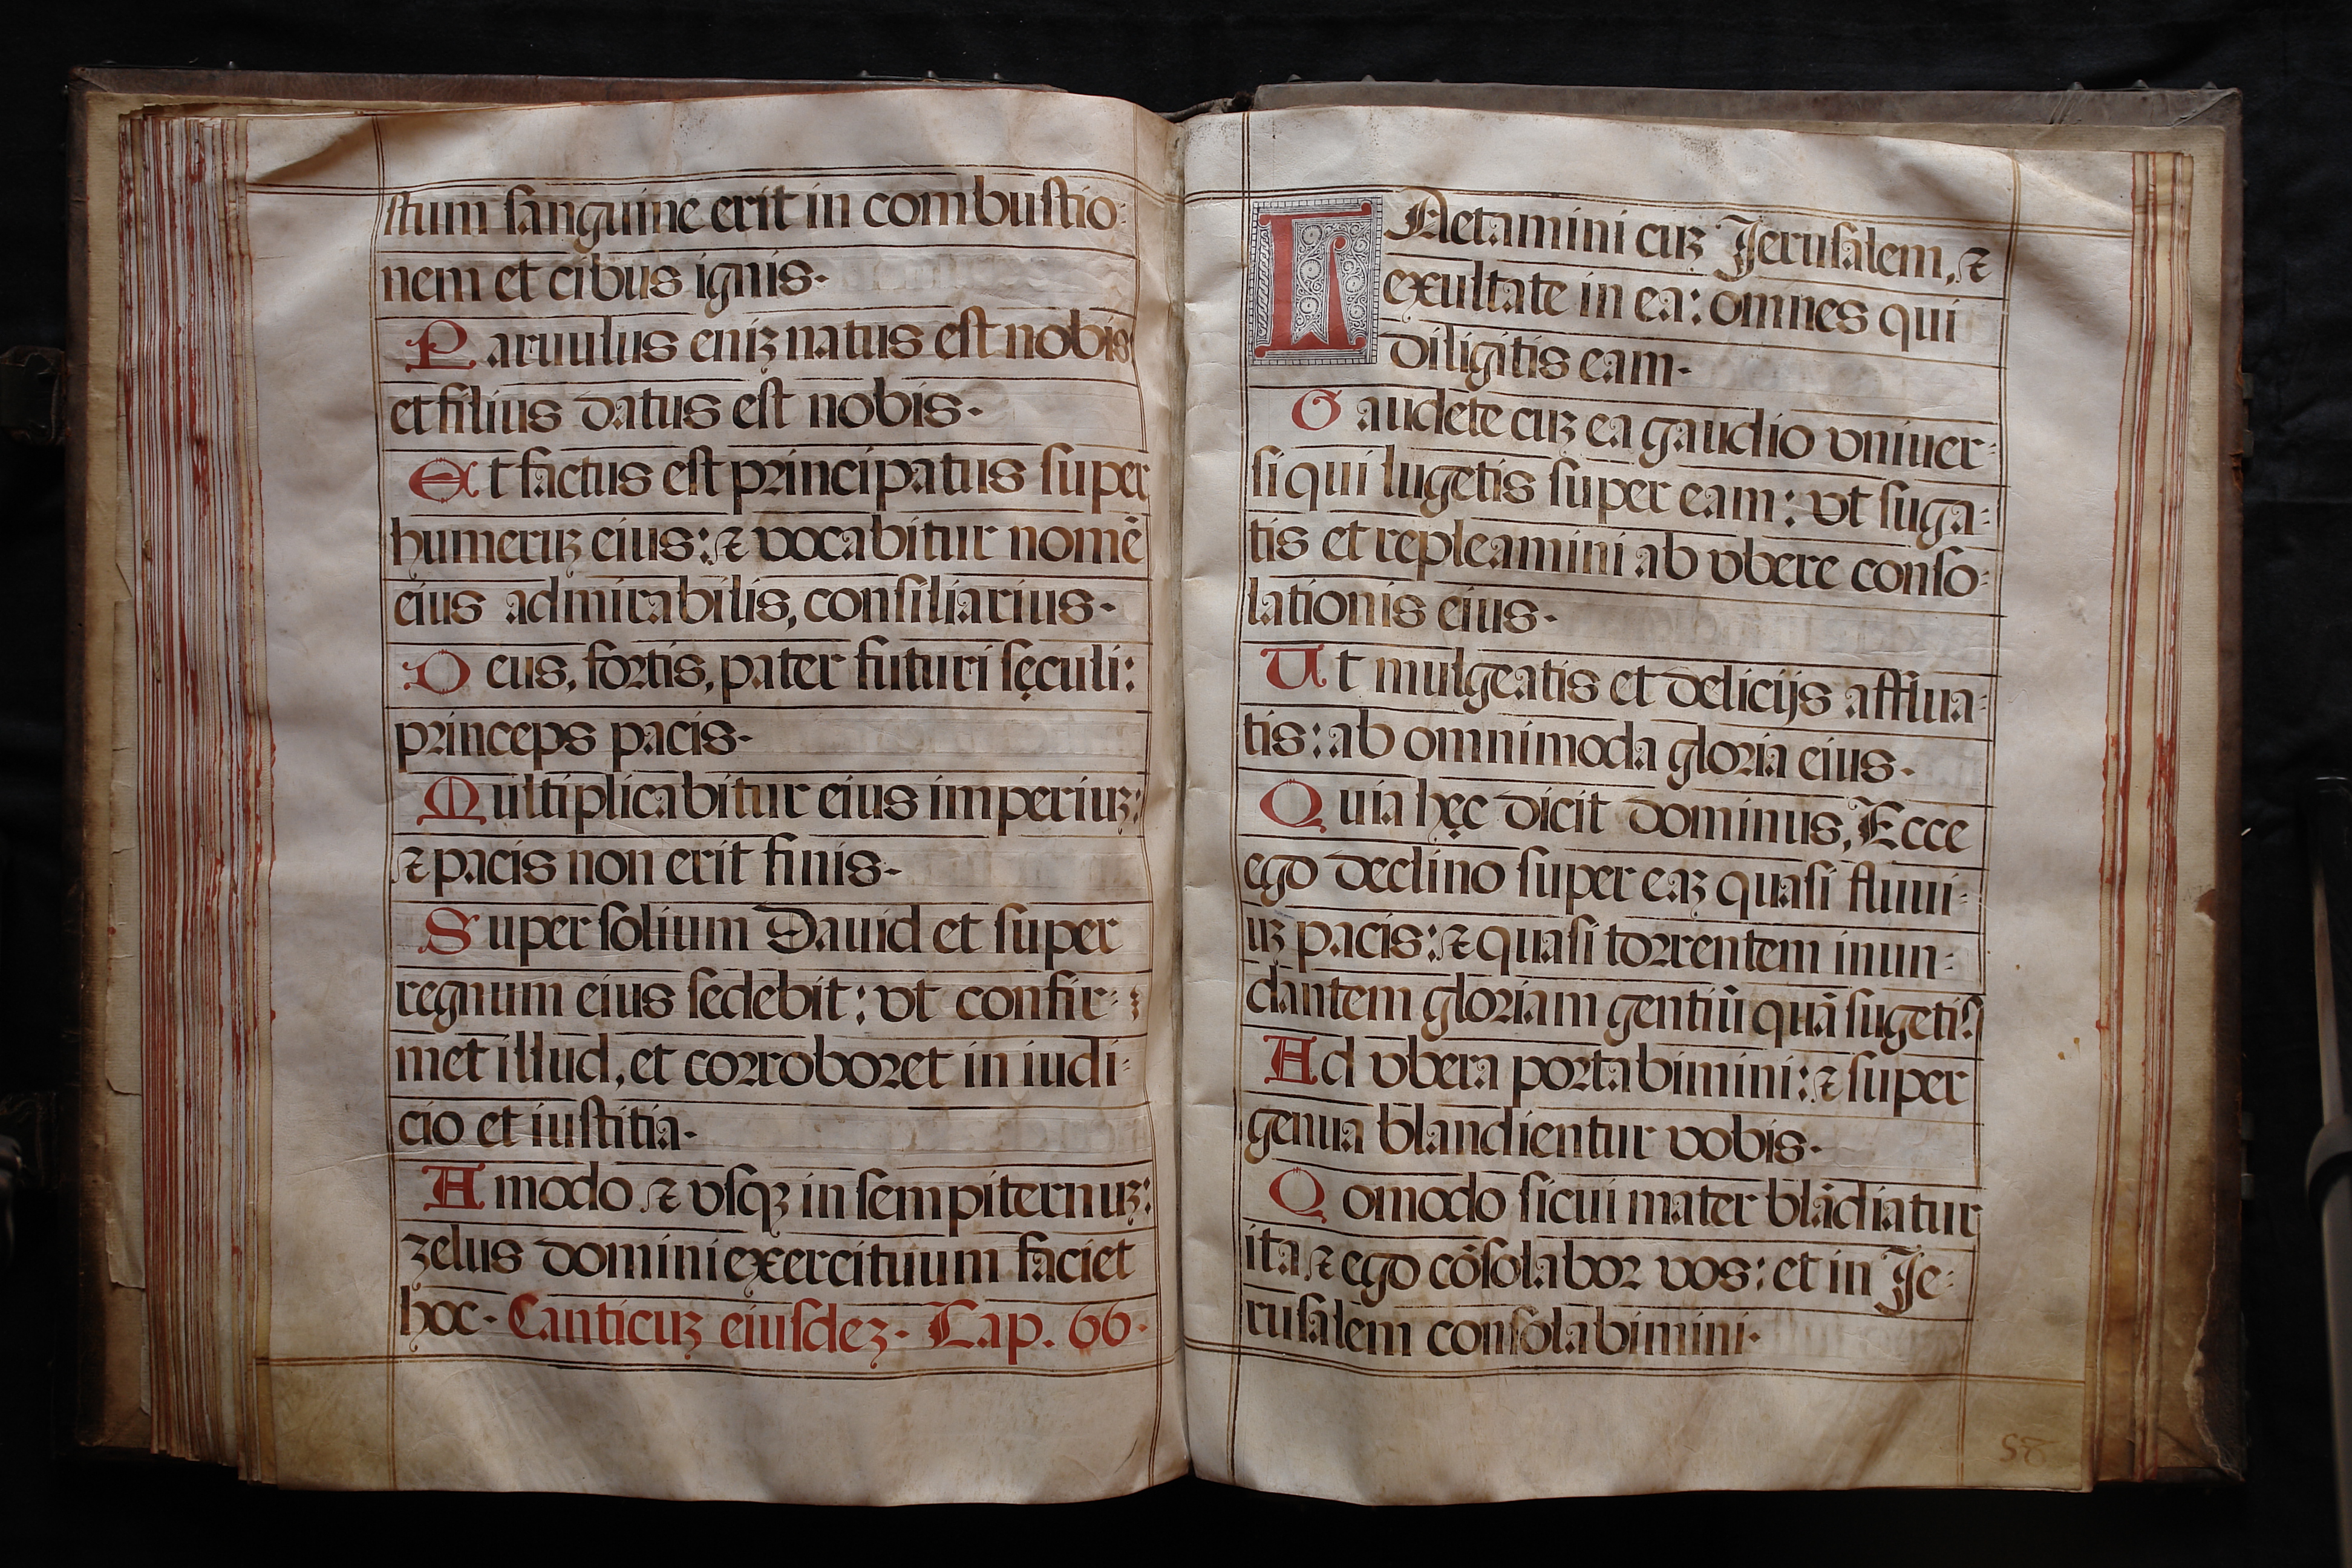 stum sanguine erit in combustio:
nem et cibus ignis.
Paruulus eniʒ natus est nobis
et filius datus est nobis.
Et factus est principatus super
humeruʒ eius: ⁊ vocabitur nomē
eius admirabilis, consiliarius.
Deus, fortis, pater futuri sęculi:
princeps pacis.
Multiplicabitur eius imperiuʒ:
⁊ pacis non erit finis.
Super solium Dauid et super
regnum eius sedebit: vt confir:
met illud, et corroboret in iudi:
cio et iustitia.
A modo ⁊ vsqʒ in sempiternuʒ:
zelus domini exercituum faciet
hoc. Canticuʒ eiusdeʒ. Cap. 66.
LAetamini cuʒ Jerusalem, ⁊
exultate in ea: omnes qui
diligitis eam.
Gaudete cuʒ ea gaudio vniuer:
si qui lugetis super eam: vt suga:
tis et repleamini ab vbere conso:
lationis eius.
Ut mulgeatis et delicijs afflua:
tis: ab omnimoda gloria eius.
Quia hęc dicit dominus, Ecce
ego declino super eaʒ quasi fluui:
uʒ pacis: ⁊ quasi torrentem inun:
dantem gloriam gentiū quā sugetis.
Ad vbera portabimini: ⁊ super
genua blandientur vobis.
Qomodo sicui mater blādiatur
ita ⁊ ego cōsolabor vos: et in Je:
rusalem consolabimini.